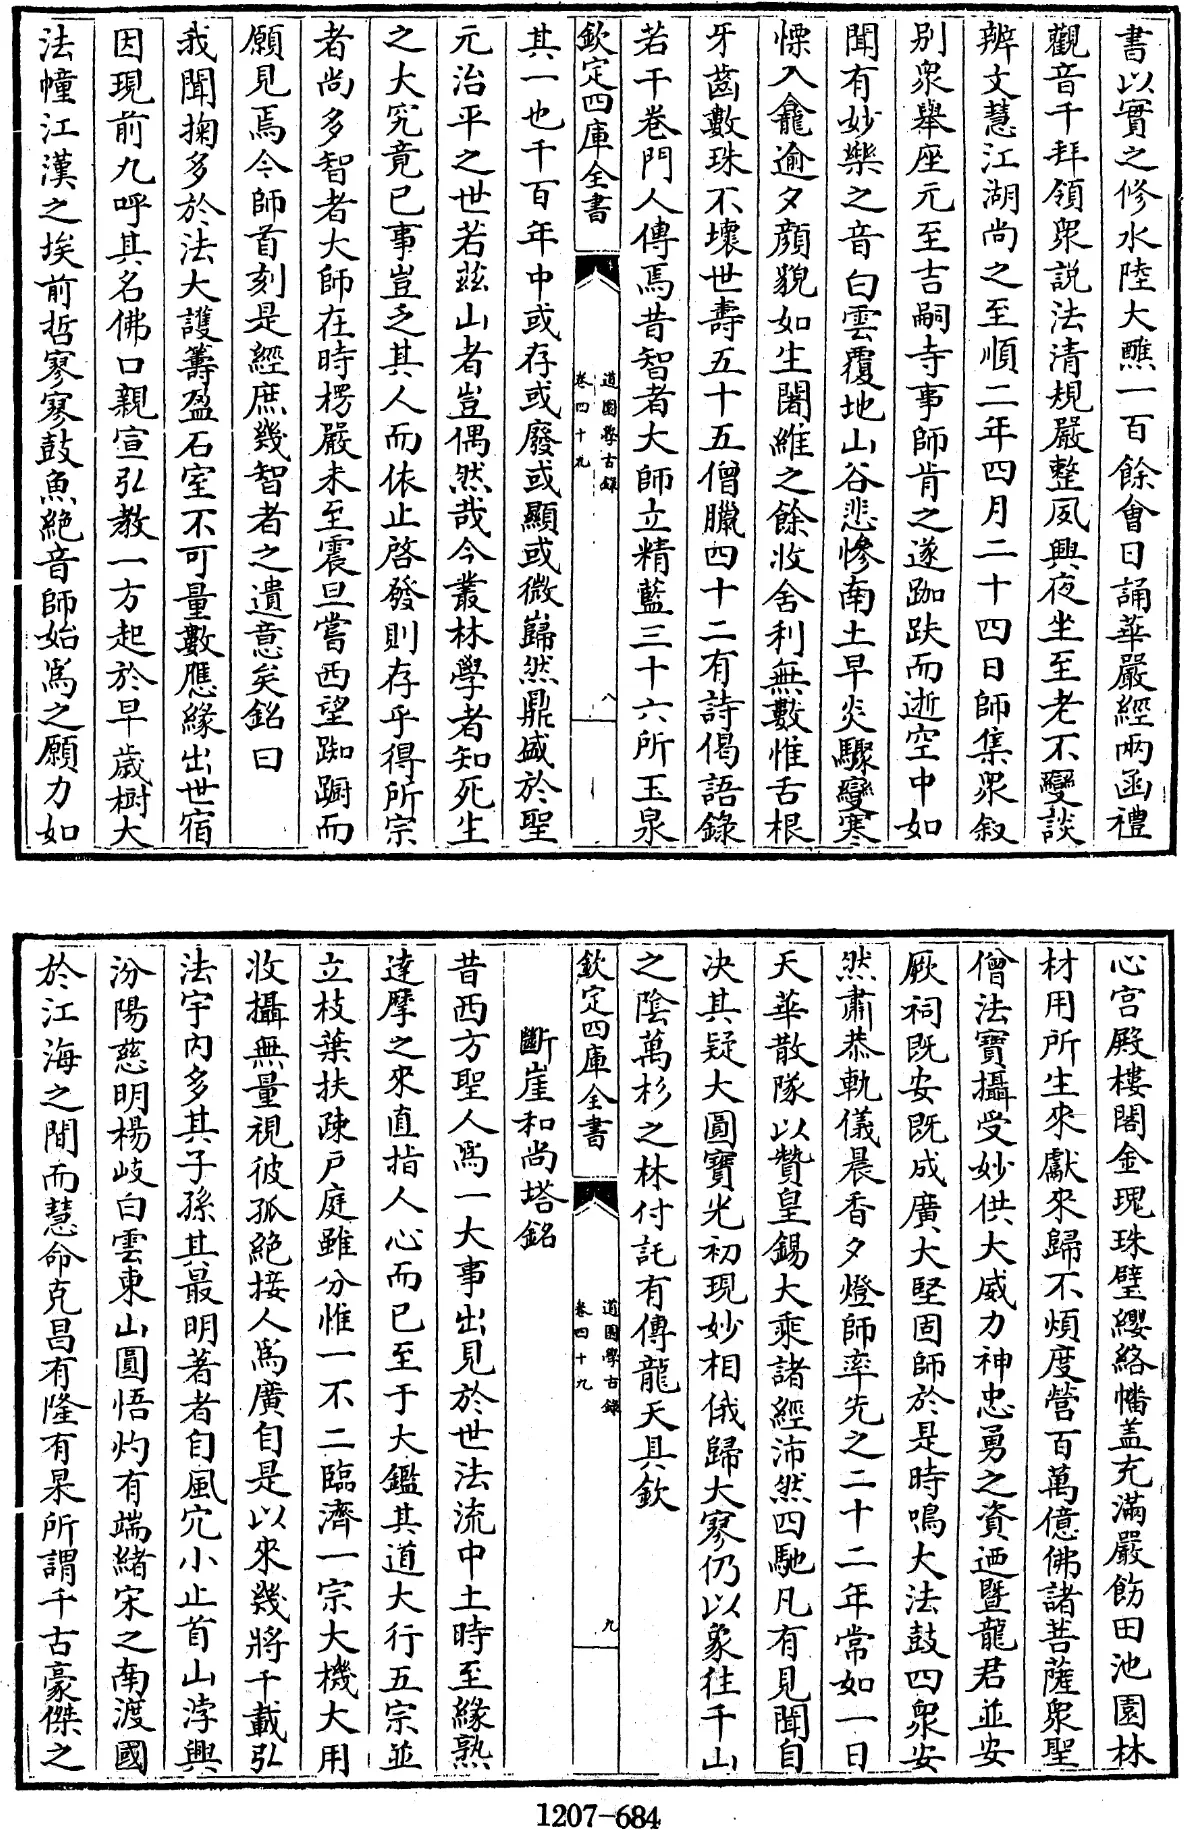 書以實之修水陸大醮一百餘會日誦華嚴經兩函禮
觀音千拜領衆説法清規嚴整夙興夜坐至老不變談
辨文慧江湖尚之至順二年四月二十四日師集衆叙
别衆舉座元至吉嗣寺事師肯之遂跏趺而逝空中如
聞有妙樂之音白雲覆地山谷悲慘南土早炎驟變寒
慄入龕逾夕顔貌如生闍維之餘收舍利無數惟舌根
牙齒數珠不壞世壽五十五僧臘四十二有詩偈語錄
若干卷門人傳焉昔智者大師立精藍三十六所玉泉
欽定四庫全書
道園學古錄
卷四十九
八
其一也千百年中或存或廢或顯或微巋然鼎盛於聖
元治平之世若兹山者豈偶然哉今叢林學者知死生
之大究竟已事豈乏其人而依止啓發則存乎得所宗
者尚多智者大師在時楞嚴未至震旦嘗西望踟蹰而
願見焉今師首刻是經庶幾智者之遺意矣銘曰
我聞掬多於法大護籌盈石室不可量數應緣出世宿
因現前九呼其名佛口親宣弘教一方起於早歲樹大
法幢江漢之埃前哲寥寥鼓魚絶音師始爲之願力如
心宫殿樓閣金瑰珠璧纓絡幡盖充滿嚴飭田池園林
材用所生來獻來歸不煩度營百萬億佛諸菩薩衆聖
僧法寶攝受妙供大威力神忠勇之資迺暨龍君並安
厥祠既安既成廣大堅固師於是時鳴大法鼓四衆安
然肅恭軌儀晨香夕燈師率先之二十二年常如一日
天華散隊以贊皇錫大乘諸經沛然四馳凡有見聞自
决其疑大圓寶光初現妙相俄歸大寥仍以象往千山
之陰萬杉之林付託有傳龍天具欽
欽定四庫全書
道園學古錄
卷四十九
九
斷崖和尚塔銘
昔西方聖人爲一大事出見於世法流中土時至緣熟
達摩之來直指人心而已至于大鑑其道大行五宗並
立枝葉扶疎户庭雖分惟一不二臨濟一宗大機大用
收攝無量視彼孤絶接人爲廣自是以來幾將千載弘
法宇内多其子孫其最明著者自風穴小止首山浡興
汾陽慈明楊岐白雲東山圓悟灼有端緒宋之南渡國
於江海之間而慧命克昌有隆有杲所謂千古豪傑之
1207-684